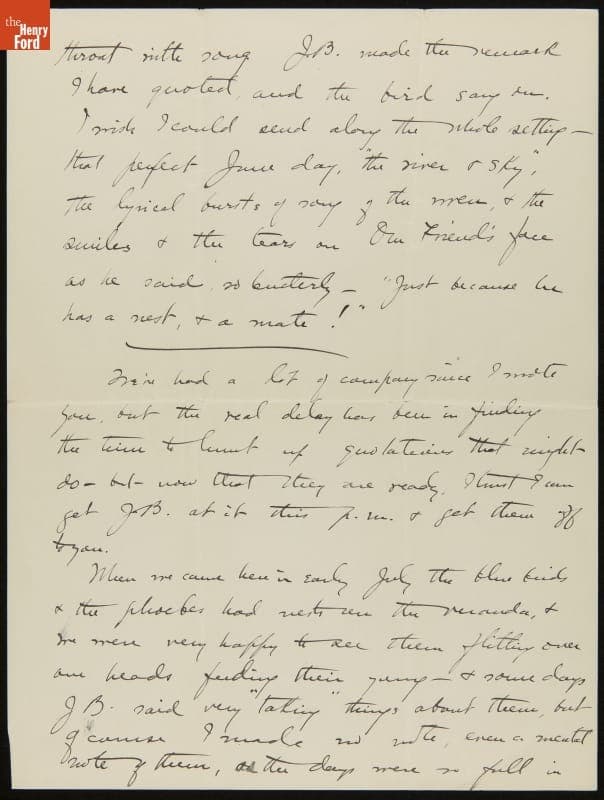 the
Henry
Ford
throat with song J.B. made the remark
I have quoted, and the bird sang on.
I wish I could send along the whole setting —
that perfect June day, "the river & sky",
the lyrical bursts of song of the wren, & the
smiles & the tears on Our Friend's face
as he said, so tenderly — "Just because he
has a nest, & a mate!"
We've had a lot of company since I wrote
you, but the real delay has been in finding
the time to hunt up quotations that might
do — but now that they are ready, I trust I can
get J.B. at it this p.m. & get them off
to you.
When we came here in early July the blue birds
& the phoebes had nests on the veranda, &
we were very happy to see them flitting over
our heads feeding their young — & some days
J.B. said very "taking" things about them, but
of course I made no note, even a mental
note of them, as the days were so full in